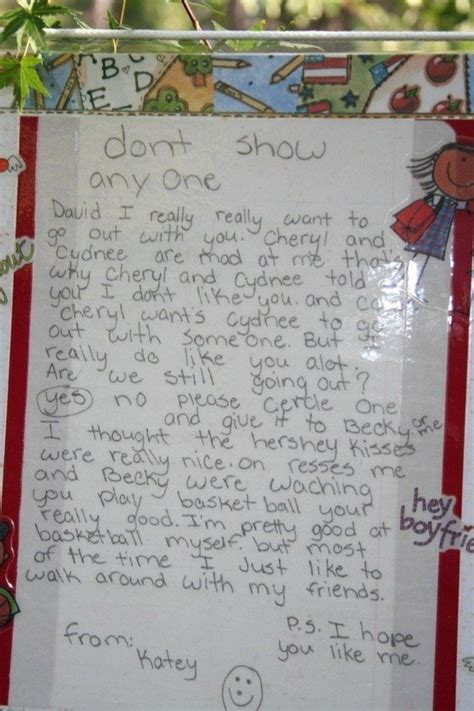 A B C D
E
dont show
any one
David I really really want to
go out with you. Cheryl and
Cydnee are mad at me that's
why Cheryl and Cydnee told
you I dont like you. and
cheryl want's Cydnee to go
out with some one. But I
really do like you alot.
Are we still going out?
yes no please cercle one
and give it to Becky or me
I thought the hershey kisses
were really nice. on resses me
and Becky were waching
you play basket ball your
really good. I'm pretty good at
basketball myself. but most
of the time I Just like to
walk around with my friends.
hey
boyfrie
from:
Katey
P.S. I hope
you like me.